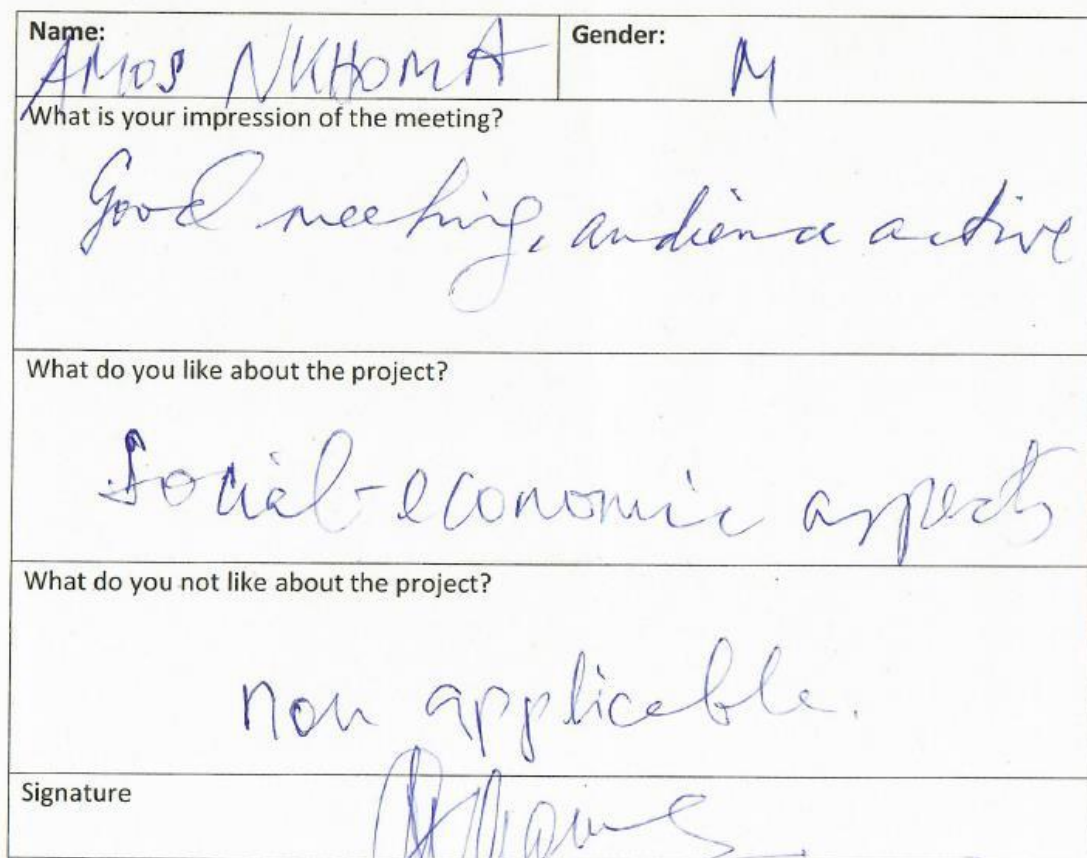 Name:
AMOS NKHOMA
Gender:
M
What is your impression of the meeting?
Good meeting, audience active
What do you like about the project?
Social-economic aspects
What do you not like about the project?
non applicable.
Signature